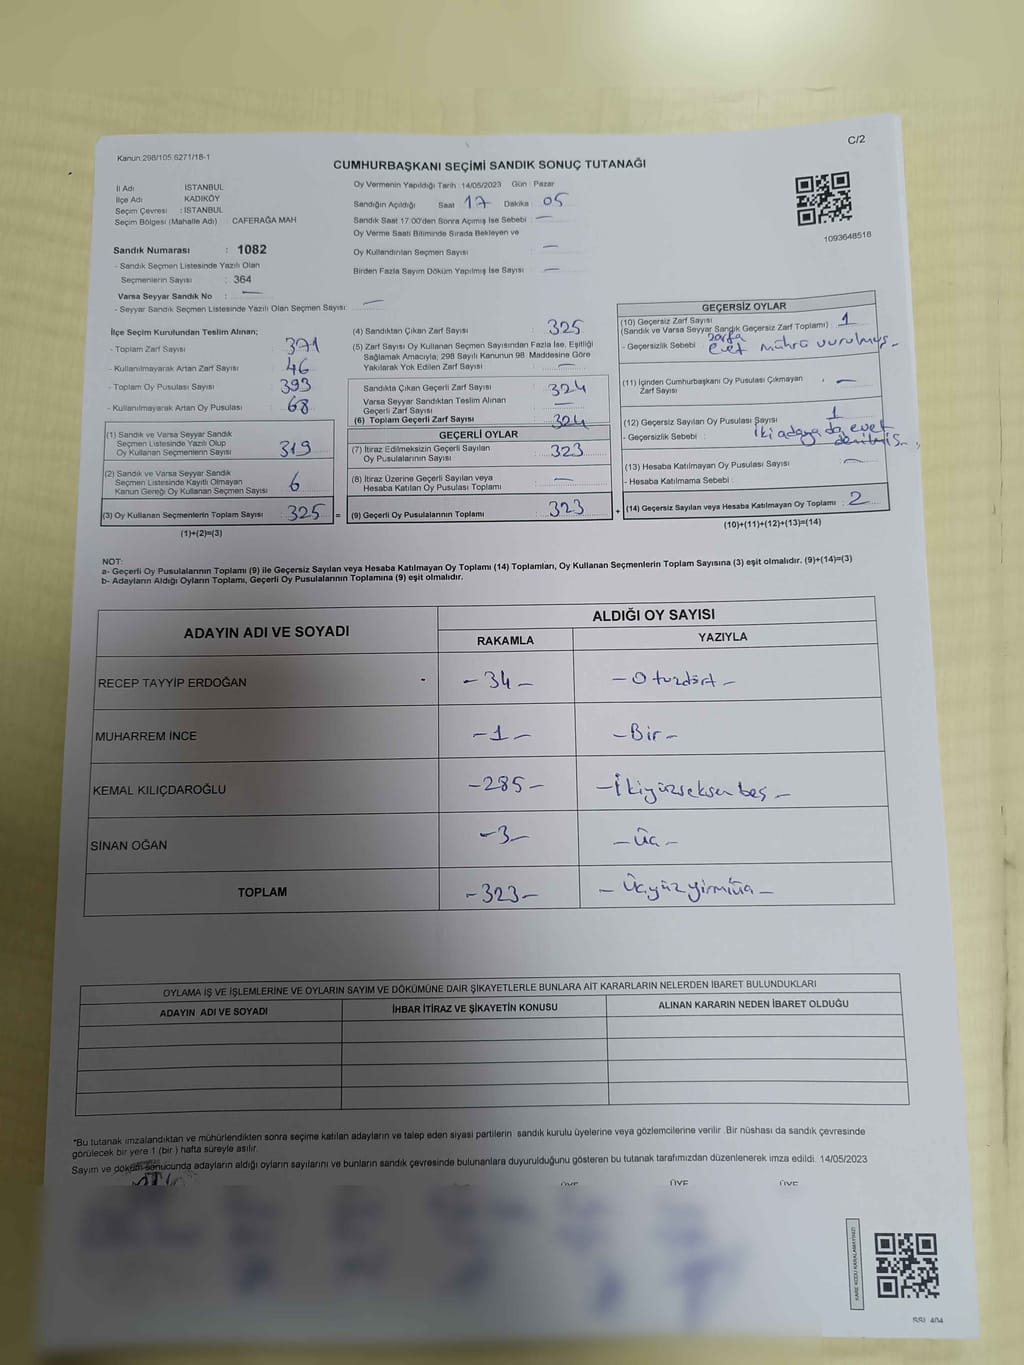 C/2
Kanun:298/105 6271/18-1
CUMHURBAŞKANI SEÇİMİ SANDIK SONUÇ TUTANAĞI
İl Adı İSTANBUL
İlçe Adı KADIKÖY
Seçim Çevresi : İSTANBUL
Seçim Bölgesi (Mahalle Adı) : CAFERAĞA MAH
Sandık Numarası : 1082
- Sandık Seçmen Listesinde Yazılı Olan
Seçmenlerin Sayısı : 364
Varsa Seyyar Sandık No : —
- Seyyar Sandık Seçmen Listesinde Yazılı Olan Seçmen Sayısı: —
Oy Vermenin Yapıldığı Tarih : 14/05/2023 Gün : Pazar
Sandığın Açıldığı Saat 17 Dakika 05
Sandık Saat 17.00'den Sonra Açımış İse Sebebi —
Oy Verme Saati Bitiminde Sırada Bekleyen ve
Oy Kullandırılan Seçmen Sayısı —
Birden Fazla Sayım Döküm Yapılmış İse Sayısı —
1093648518
İlçe Seçim Kurulundan Teslim Alınan;
- Toplam Zarf Sayısı : 371
- Kullanılmayarak Artan Zarf Sayısı : 46
- Toplam Oy Pusulası Sayısı : 393
- Kullanılmayarak Artan Oy Pusulası : 68
(1) Sandık ve Varsa Seyyar Sandık
Seçmen Listesinde Yazılı Olup
Oy Kullanan Seçmenlerin Sayısı : 319
(2) Sandık ve Varsa Seyyar Sandık
Seçmen Listesinde Kayıtlı Olmayan
Kanun Gereği Oy Kullanan Seçmen Sayısı : 6
(3) Oy Kullanan Seçmenlerin Toplam Sayısı : 325 =
(1)+(2)=(3)
(4) Sandıktan Çıkan Zarf Sayısı : 325
(5) Zarf Sayısı Oy Kullanan Seçmen Sayısından Fazla İse, Eşitliği
Sağlamak Amacıyla; 298 Sayılı Kanunun 98. Maddesine Göre
Yakılarak Yok Edilen Zarf Sayısı : —
Sandıkta Çıkan Geçerli Zarf Sayısı : 324
Varsa Seyyar Sandıktan Teslim Alınan
Geçerli Zarf Sayısı : —
(6) Toplam Geçerli Zarf Sayısı : 324
GEÇERLİ OYLAR
(7) İtiraz Edilmeksizin Geçerli Sayılan
Oy Pusulalarının Sayısı : 323
(8) İtiraz Üzerine Geçerli Sayılan veya
Hesaba Katılan Oy Pusulası Toplamı : —
(9) Geçerli Oy Pusulalarının Toplamı : 323 +
GEÇERSİZ OYLAR
(10) Geçersiz Zarf Sayısı
(Sandık ve Varsa Seyyar Sandık Geçersiz Zarf Toplamı) : 1
- Geçersizlik Sebebi : zarfa
evet mührü vurulmuş -
(11) İçinden Cumhurbaşkanı Oy Pusulası Çıkmayan
Zarf Sayısı : —
(12) Geçersiz Sayılan Oy Pusulası Sayısı : 1
- Geçersizlik Sebebi : İki adaya da evet
denilmiş -
(13) Hesaba Katılmayan Oy Pusulası Sayısı : —
- Hesaba Katılmama Sebebi :
(14) Geçersiz Sayılan veya Hesaba Katılmayan Oy Toplamı : 2
(10)+(11)+(12)+(13)=(14)
NOT:
a- Geçerli Oy Pusulalarının Toplamı (9) ile Geçersiz Sayılan veya Hesaba Katılmayan Oy Toplamı (14) Toplamları, Oy Kullanan Seçmenlerin Toplam Sayısına (3) eşit olmalıdır. (9)+(14)=(3)
b- Adayların Aldığı Oyların Toplamı, Geçerli Oy Pusulalarının Toplamına (9) eşit olmalıdır.
ADAYIN ADI VE SOYADI ALDIĞI OY SAYISI
RAKAMLA YAZIYLA
RECEP TAYYİP ERDOĞAN - 34 - - Otuzdört -
MUHARREM İNCE - 1 - - Bir -
KEMAL KILIÇDAROĞLU - 285 - - İkiyüzseksenbeş -
SİNAN OĞAN - 3 - - Üç -
TOPLAM - 323 - - Üçyüzyirmiüç -
OYLAMA İŞ VE İŞLEMLERİNE VE OYLARIN SAYIM VE DÖKÜMÜNE DAİR ŞİKAYETLERLE BUNLARA AİT KARARLARIN NELERDEN İBARET BULUNDUKLARI
ADAYIN ADI VE SOYADI İHBAR İTİRAZ VE ŞİKAYETİN KONUSU ALINAN KARARIN NEDEN İBARET OLDUĞU
*Bu tutanak imzalandıktan ve mühürlendikten sonra seçime katılan adayların ve talep eden siyasi partilerin sandık kurulu üyelerine veya gözlemcilerine verilir. Bir nüshası da sandık çevresinde
görülecek bir yere 1 (bir ) hafta süreyle asılır.
Sayım ve döküm sonucunda adayların aldığı oyların sayılarını ve bunların sandık çevresinde bulunanlara duyurulduğunu gösteren bu tutanak tarafımızdan düzenlenerek imza edildi. 14/05/2023
ÜYE ÜYE ÜYE
KARE KODU KARALAMAYINIZ!